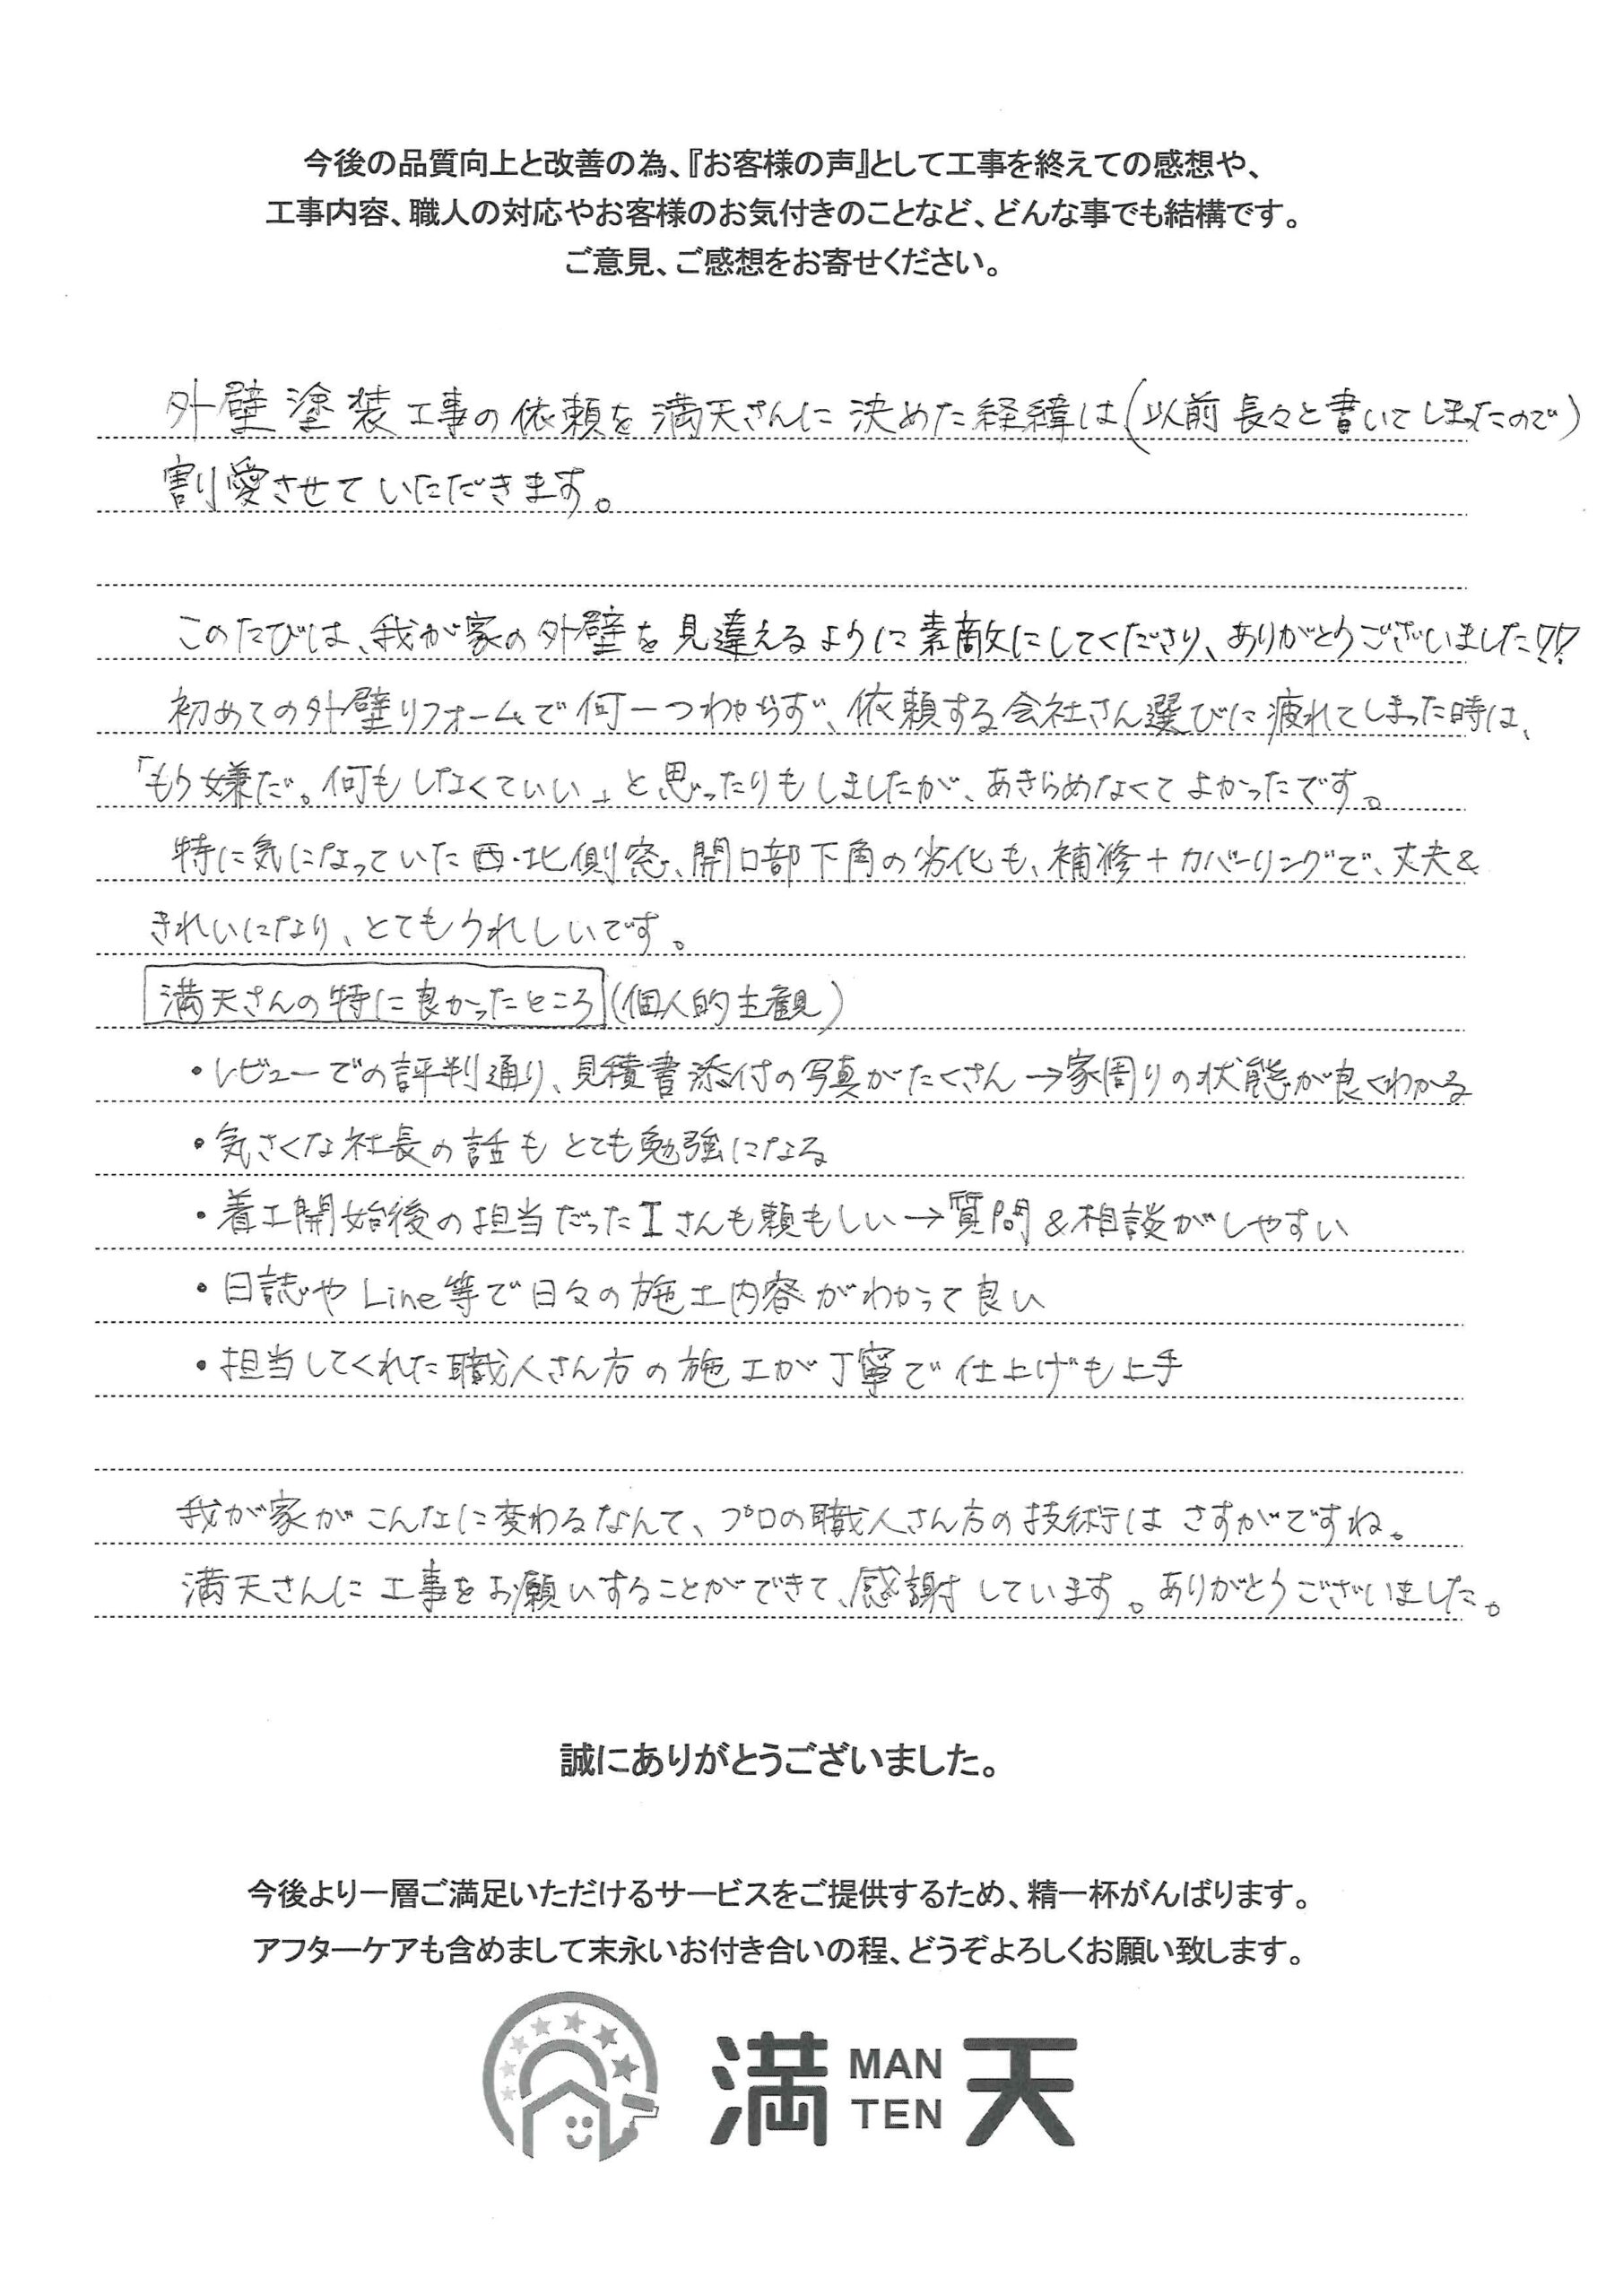 今後の品質向上と改善の為、『お客様の声』として工事を終えての感想や、
工事内容、職人の対応やお客様のお気付きのことなど、どんな事でも結構です。
ご意見、ご感想をお寄せください。
外壁塗装工事の依頼を満天さんに決めた経緯は(以前長々と書いてしまったので)
割愛させていただきます。
このたびは、我が家の外壁を見違えるように素敵にしてくださり、ありがとうございました!!
初めての外壁リフォームで何一つわからず、依頼する会社さん選びに疲れてしまった時は、
「もう嫌だ。何もしなくていい」と思ったりもしましたが、あきらめなくてよかったです。
特に気になっていた西・北側窓、開口部下角の劣化も、補修+カバーリングで、丈夫&
きれいになり、とてもうれしいです。
満天さんの特に良かったところ(個人的主観)
・レビューでの評判通り、見積書添付の写真がたくさん→家周りの状態が良くわかる
・気さくな社長の話もとても勉強になる
・着工開始後の担当だったIさんも頼もしい→質問&相談がしやすい
・日誌やLine等で日々の施工内容がわかって良い
・担当してくれた職人さん方の施工が丁寧で仕上げも上手
我が家がこんなに変わるなんて、プロの職人さん方の技術はさすがですね。
満天さんに工事をお願いすることができて、感謝しています。ありがとうございました。
誠にありがとうございました。
今後より一層ご満足いただけるサービスをご提供するため、精一杯がんばります。
アフターケアも含めまして末永いお付き合いの程、どうぞよろしくお願い致します。
満 MAN TEN 天